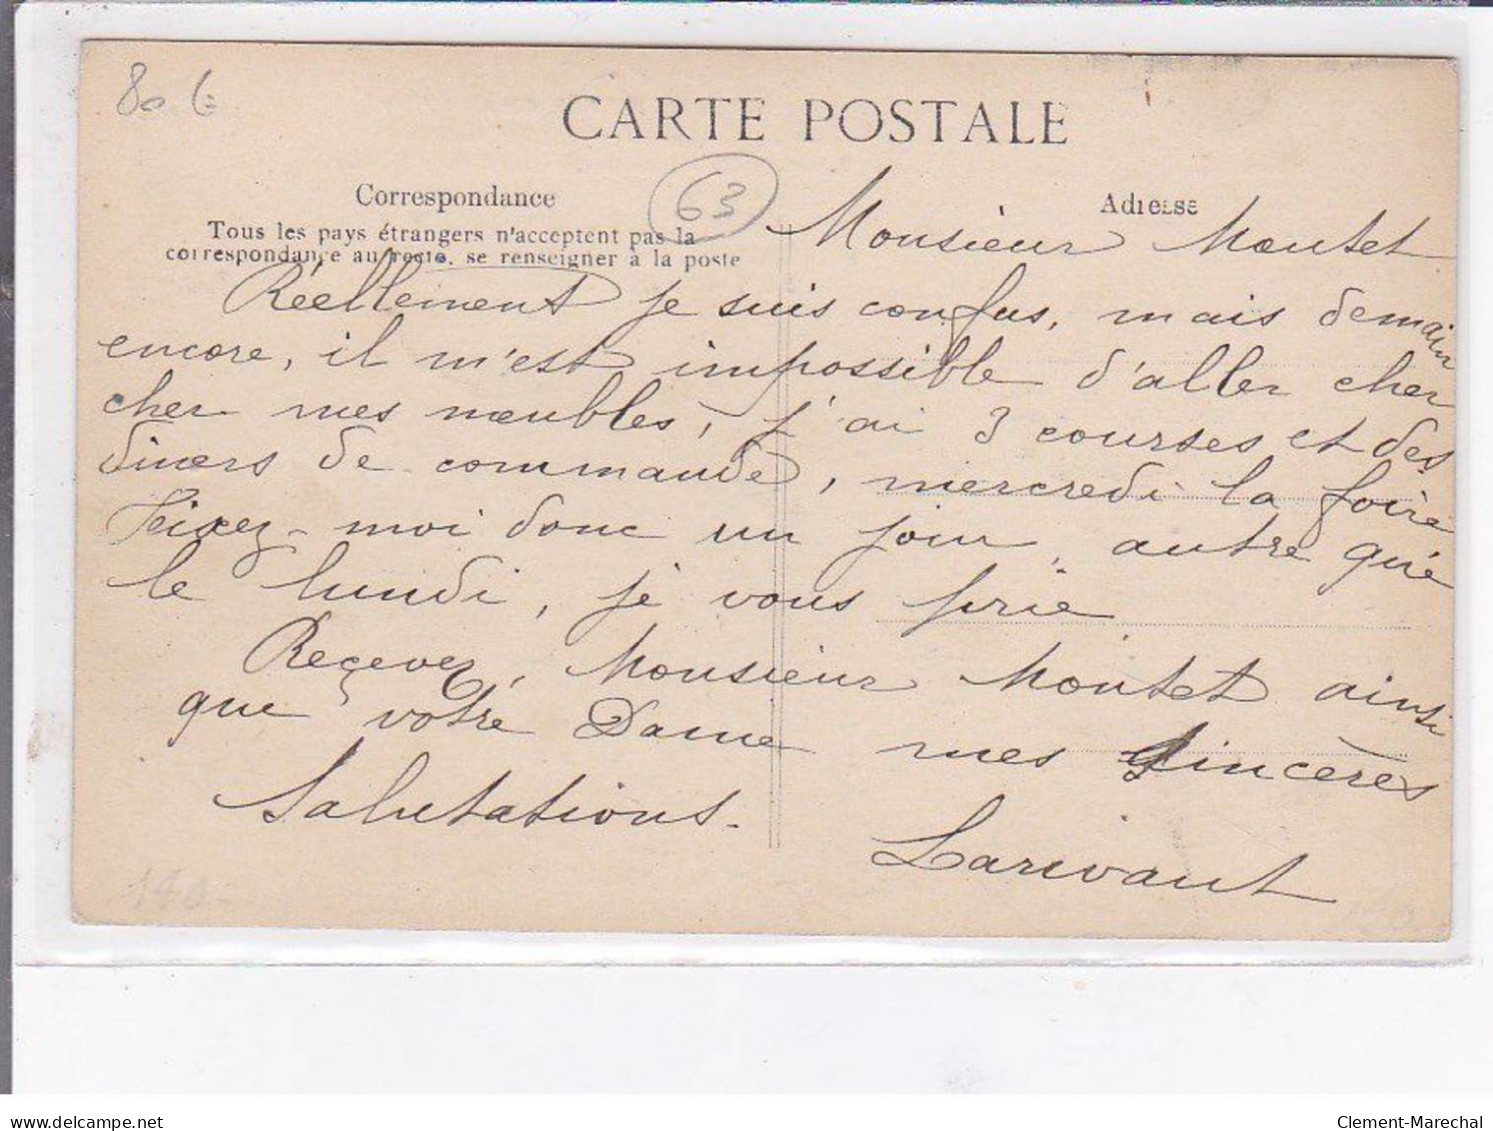 80 €
CARTE POSTALE
63
Correspondance
Adresse
Tous les pays étrangers n'acceptent pas la
correspondance au recto, se renseigner à la poste
Monsieur Montet
Réellement je suis confus, mais demain
encore, il m'est impossible d'aller cher
cher mes meubles, j'ai 3 courses et des
diners de commande, mercredi la foire
Feixez-moi donc un jour, autre que
le lundi, je vous prie
Reçevez, Monsieur Montet ainsi
que votre Dame mes Sincères
Salutations.
Larivaut
delcampe.net
Clement-Marechal